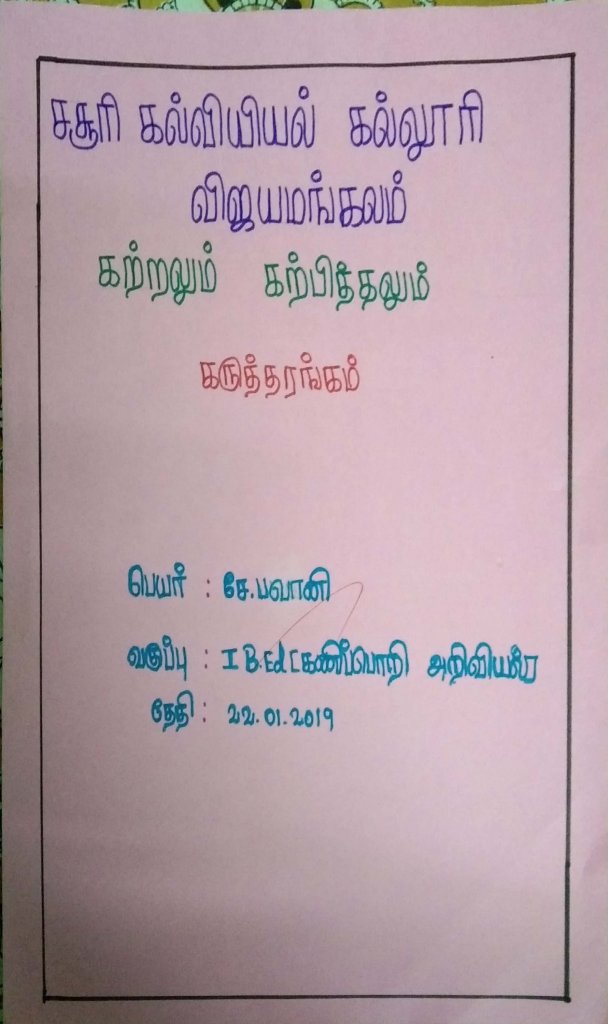 சசூரி கல்வியியல் கல்லூரி
விஜயமங்கலம்
கற்றலும் கற்பித்தலும்
கருத்தரங்கம்
பெயர் : சே.பவானி
வகுப்பு : I B.Ed [கணிப்பொறி அறிவியல்]
தேதி : 22.01.2019